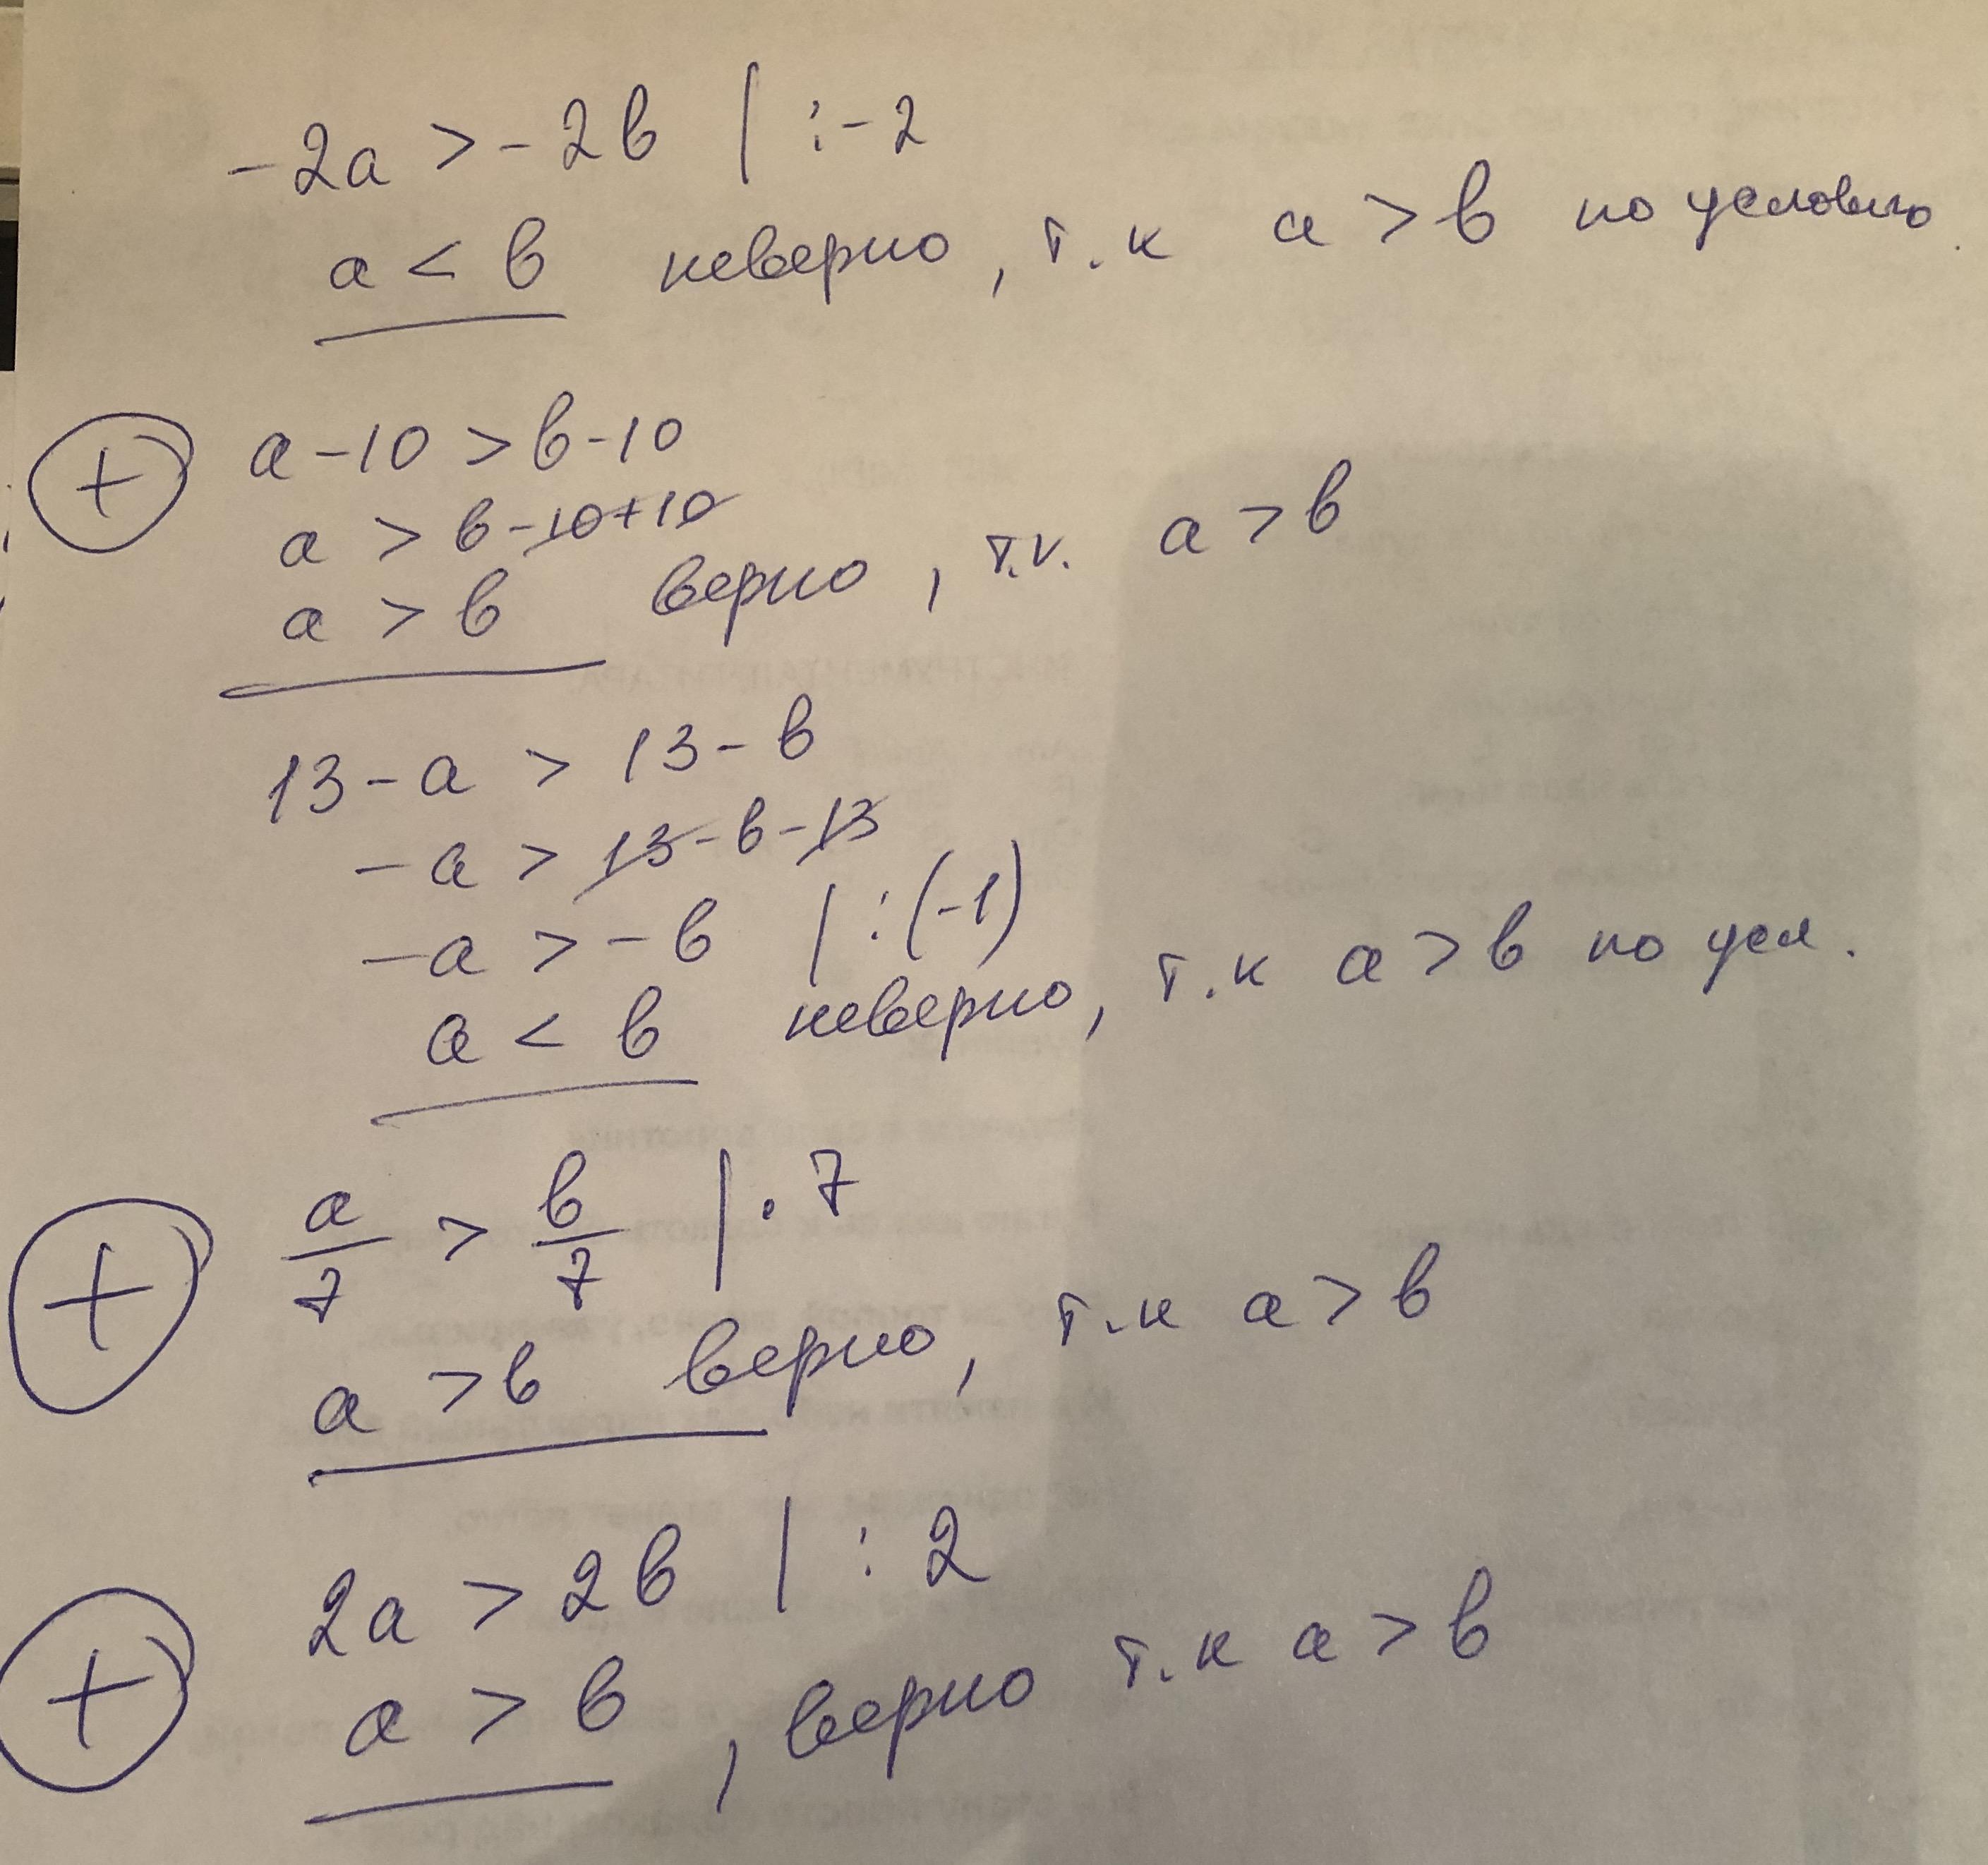 -2a > -2b | :-2
a < b неверно, т.к a > b по условию
+ a - 10 > b - 10
a > b - 10 + 10
a > b верно, т.к. a > b
13 - a > 13 - b
-a > 13 - b - 13
-a > -b | :(-1)
a < b неверно, т.к a > b по усл.
+ a/7 > b/7 | · 7
a > b верно, т.к a > b
+ 2a > 2b | : 2
a > b, верно т.к a > b